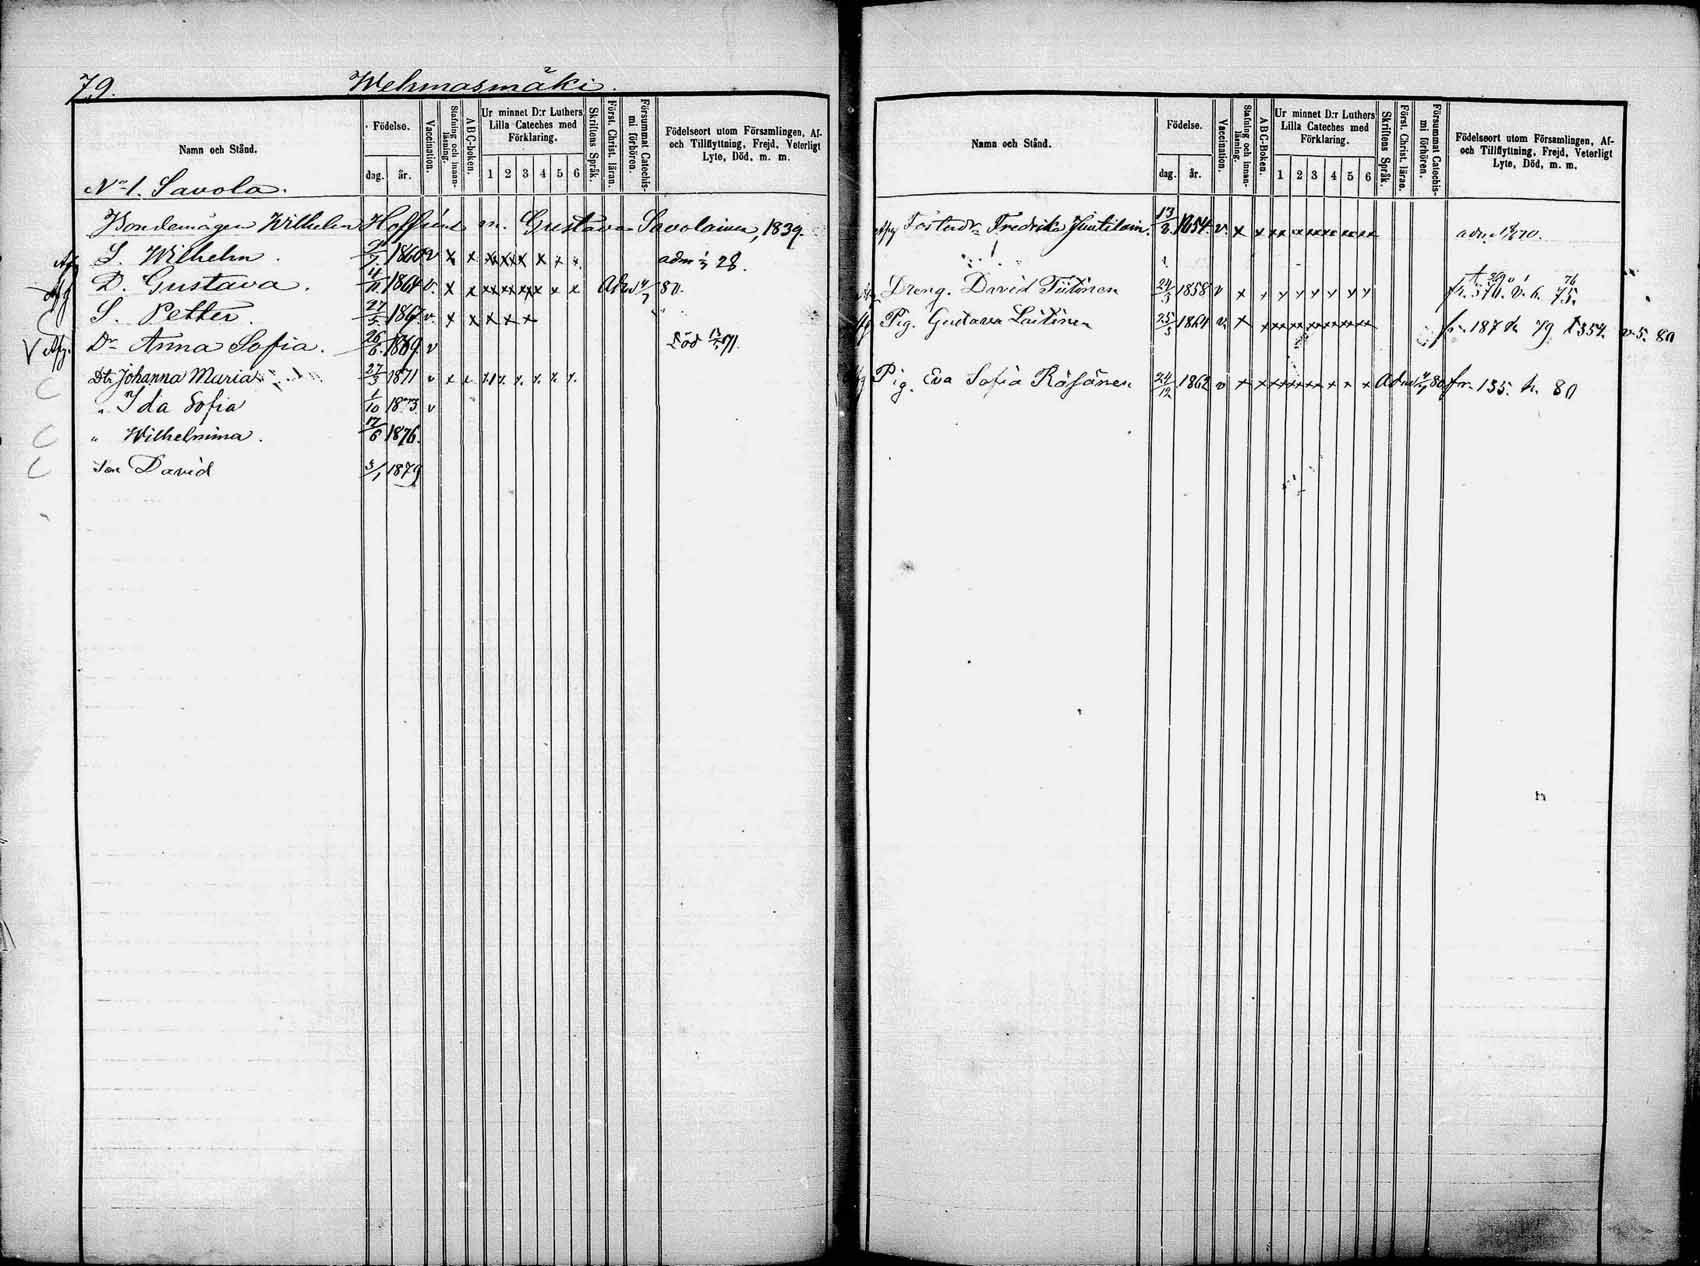 79.
Wehmasmäki.
Namn och Stånd.
Födelse.
dag.
år.
Vaccination.
Stafning och innan-
läsning.
ABC-boken.
Ur minnet D:r Luthers
Lilla Cateches med
Förklaring.
1 2 3 4 5 6
Skriftens Språk.
Först. Christ. läran.
Försummat Catechis-
mi förhören.
Födelseort utom Församlingen, Af-
och Tillflyttning, Frejd, Veterligt
Lyte, Död, m. m.
No 1. Savola.
Bondemågen Wilhelm Hoffrént m. Gustava Savolainen, 1839.
S. Wilhelm. 1860 v x x x x x x x x
D. Gustava. 4/11 1864 v. x x x x x x x x Adm 80.
S. Petter. 27/5 1867 v. x x x x x
Dr Anna Sofia. 26/6 1869 v Död 71.
Dtr Johanna Maria 27/3 1871 v x x
" Ida Sofia 1/10 1873 v
" Wilhelmina. 17/6 1876.
Son David 3/1 1879
Namn och Stånd.
Födelse.
dag.
år.
Vaccination.
Stafning och innan-
läsning.
ABC-Boken.
Ur minnet D:r Luthers
Lilla Cateches med
Förklaring.
1 2 3 4 5 6
Skriftens Språk.
Först. Christ. läran.
Försummat Catechis-
mi förhören.
Födelseort utom Församlingen, Af-
och Tillflyttning, Frejd, Veterligt
Lyte, Död, m. m.
Fosterdr Fredrika 13/2 1854. v. x x x x x x x x
Dreng. David Tiitinen 24/3 1858 v x
Pig. Gustava Laitinen 25/3 1864 v. x fr. 187 h. 79 t 354. v. 5. 80
Pig. Eva Sofia Räsänen 24/12 1862 v x x x x x x x x Adm 80 fr. 135. h. 80